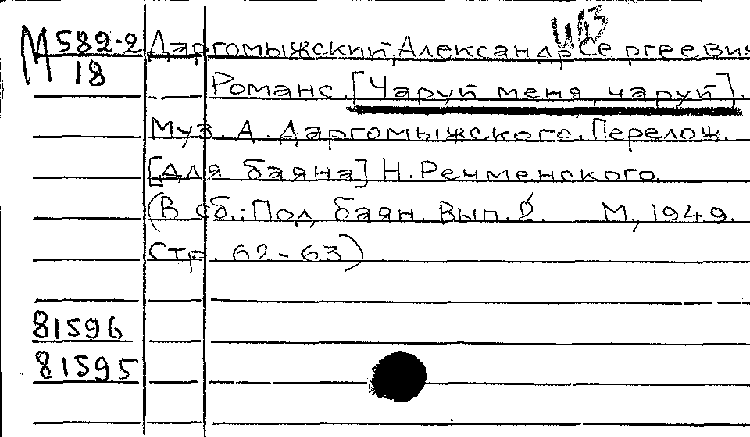 М 582-2 Даргомыжский, Александр Сергеевич
18 Романс. [Чаруй меня, чаруй].
Муз. А. Даргомыжского. Перелож.
[для баяна] Н. Речменского
(В сб.: Под баян. Вып. 2. М, 1949.
стр. 62-63)
81596
81595